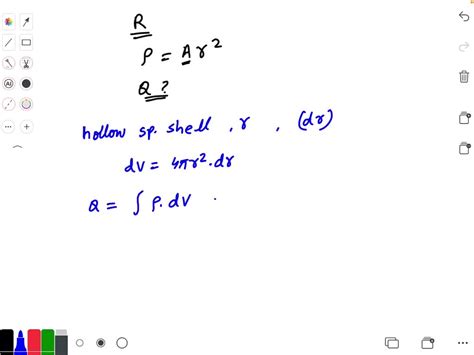 R
ρ = Ar²
Q ?
hollow sp. shell , r , (dr)
dV = 4πr².dr
Q = ∫ ρ.dV